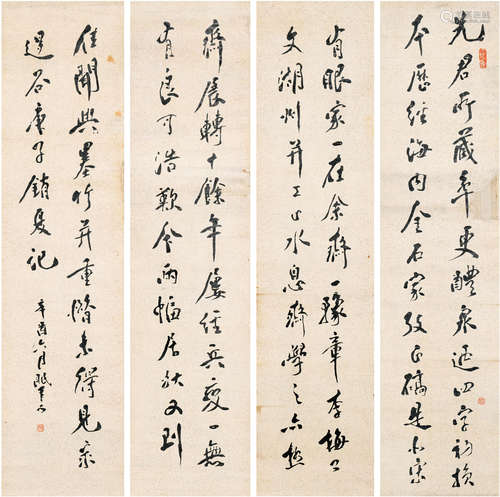 先君所藏皋更醴泉 四字初損
本歷經海内金石家 正礄是北宋
有眼家一在余齋一豫章李梅公
文湖州并工山水息齋學之亦 
齋展轉十餘年屢經兵變一無
有良可浩歎今兩幅居然又到
佳聞與墨竹并重惜未得見
退谷庚子銷夏記
辛酉六月